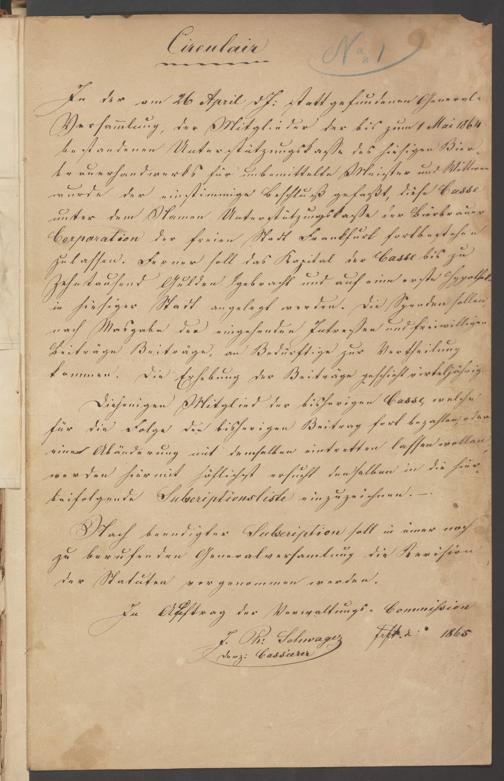 Circulair
No 1
In der am 26 April d J: stattgefundenen General-
Versammlung, der Mitglieder der bis zum 1 Mai 1864
bestandenen Unterstützungskasse des hiesigen Bier-
brauerhandwerks für unbemittelte Meister und Wittwen
wurde der einstimmige Beschluß gefaßt, diese Casse
unter dem Namen Unterstützungskasse der Bierbrauer
Corporation der freien Stadt Frankfurt fortbestehen
zulassen. Ferner soll das Kapital der Casse bis zu
Zehntausend Gulden gebracht und auf eine erste Hypothek
in hiesiger Stadt angelegt werden. Die Spenden sollen
nach Masgabe der eingehenden Interessen und freiwilligen
Beiträge Beiträge, an Bedürftige zur Vertheilung
kommen. Die Erhebung der Beiträge geschieht vierteljährig.
Diejenigen Mitglied der bisherigen Casse, welche
für die Folge den bisherigen Beitrag fort bezahlen oder
eine Abänderung mit demselben eintretten lassen wollen,
werden hiermit höflichst ersucht denselben in die hier
beifolgende Subscriptionsliste einzuzeichnen. —
Nach beendigter Subscription soll in einer noch
zu berufenden Generalversamlung die Revision
der Statuten vorgenommen werden.
Im Auftrag der Verwaltungs-Commission
J. Ph: Schwager
derz: Cassierer
1865